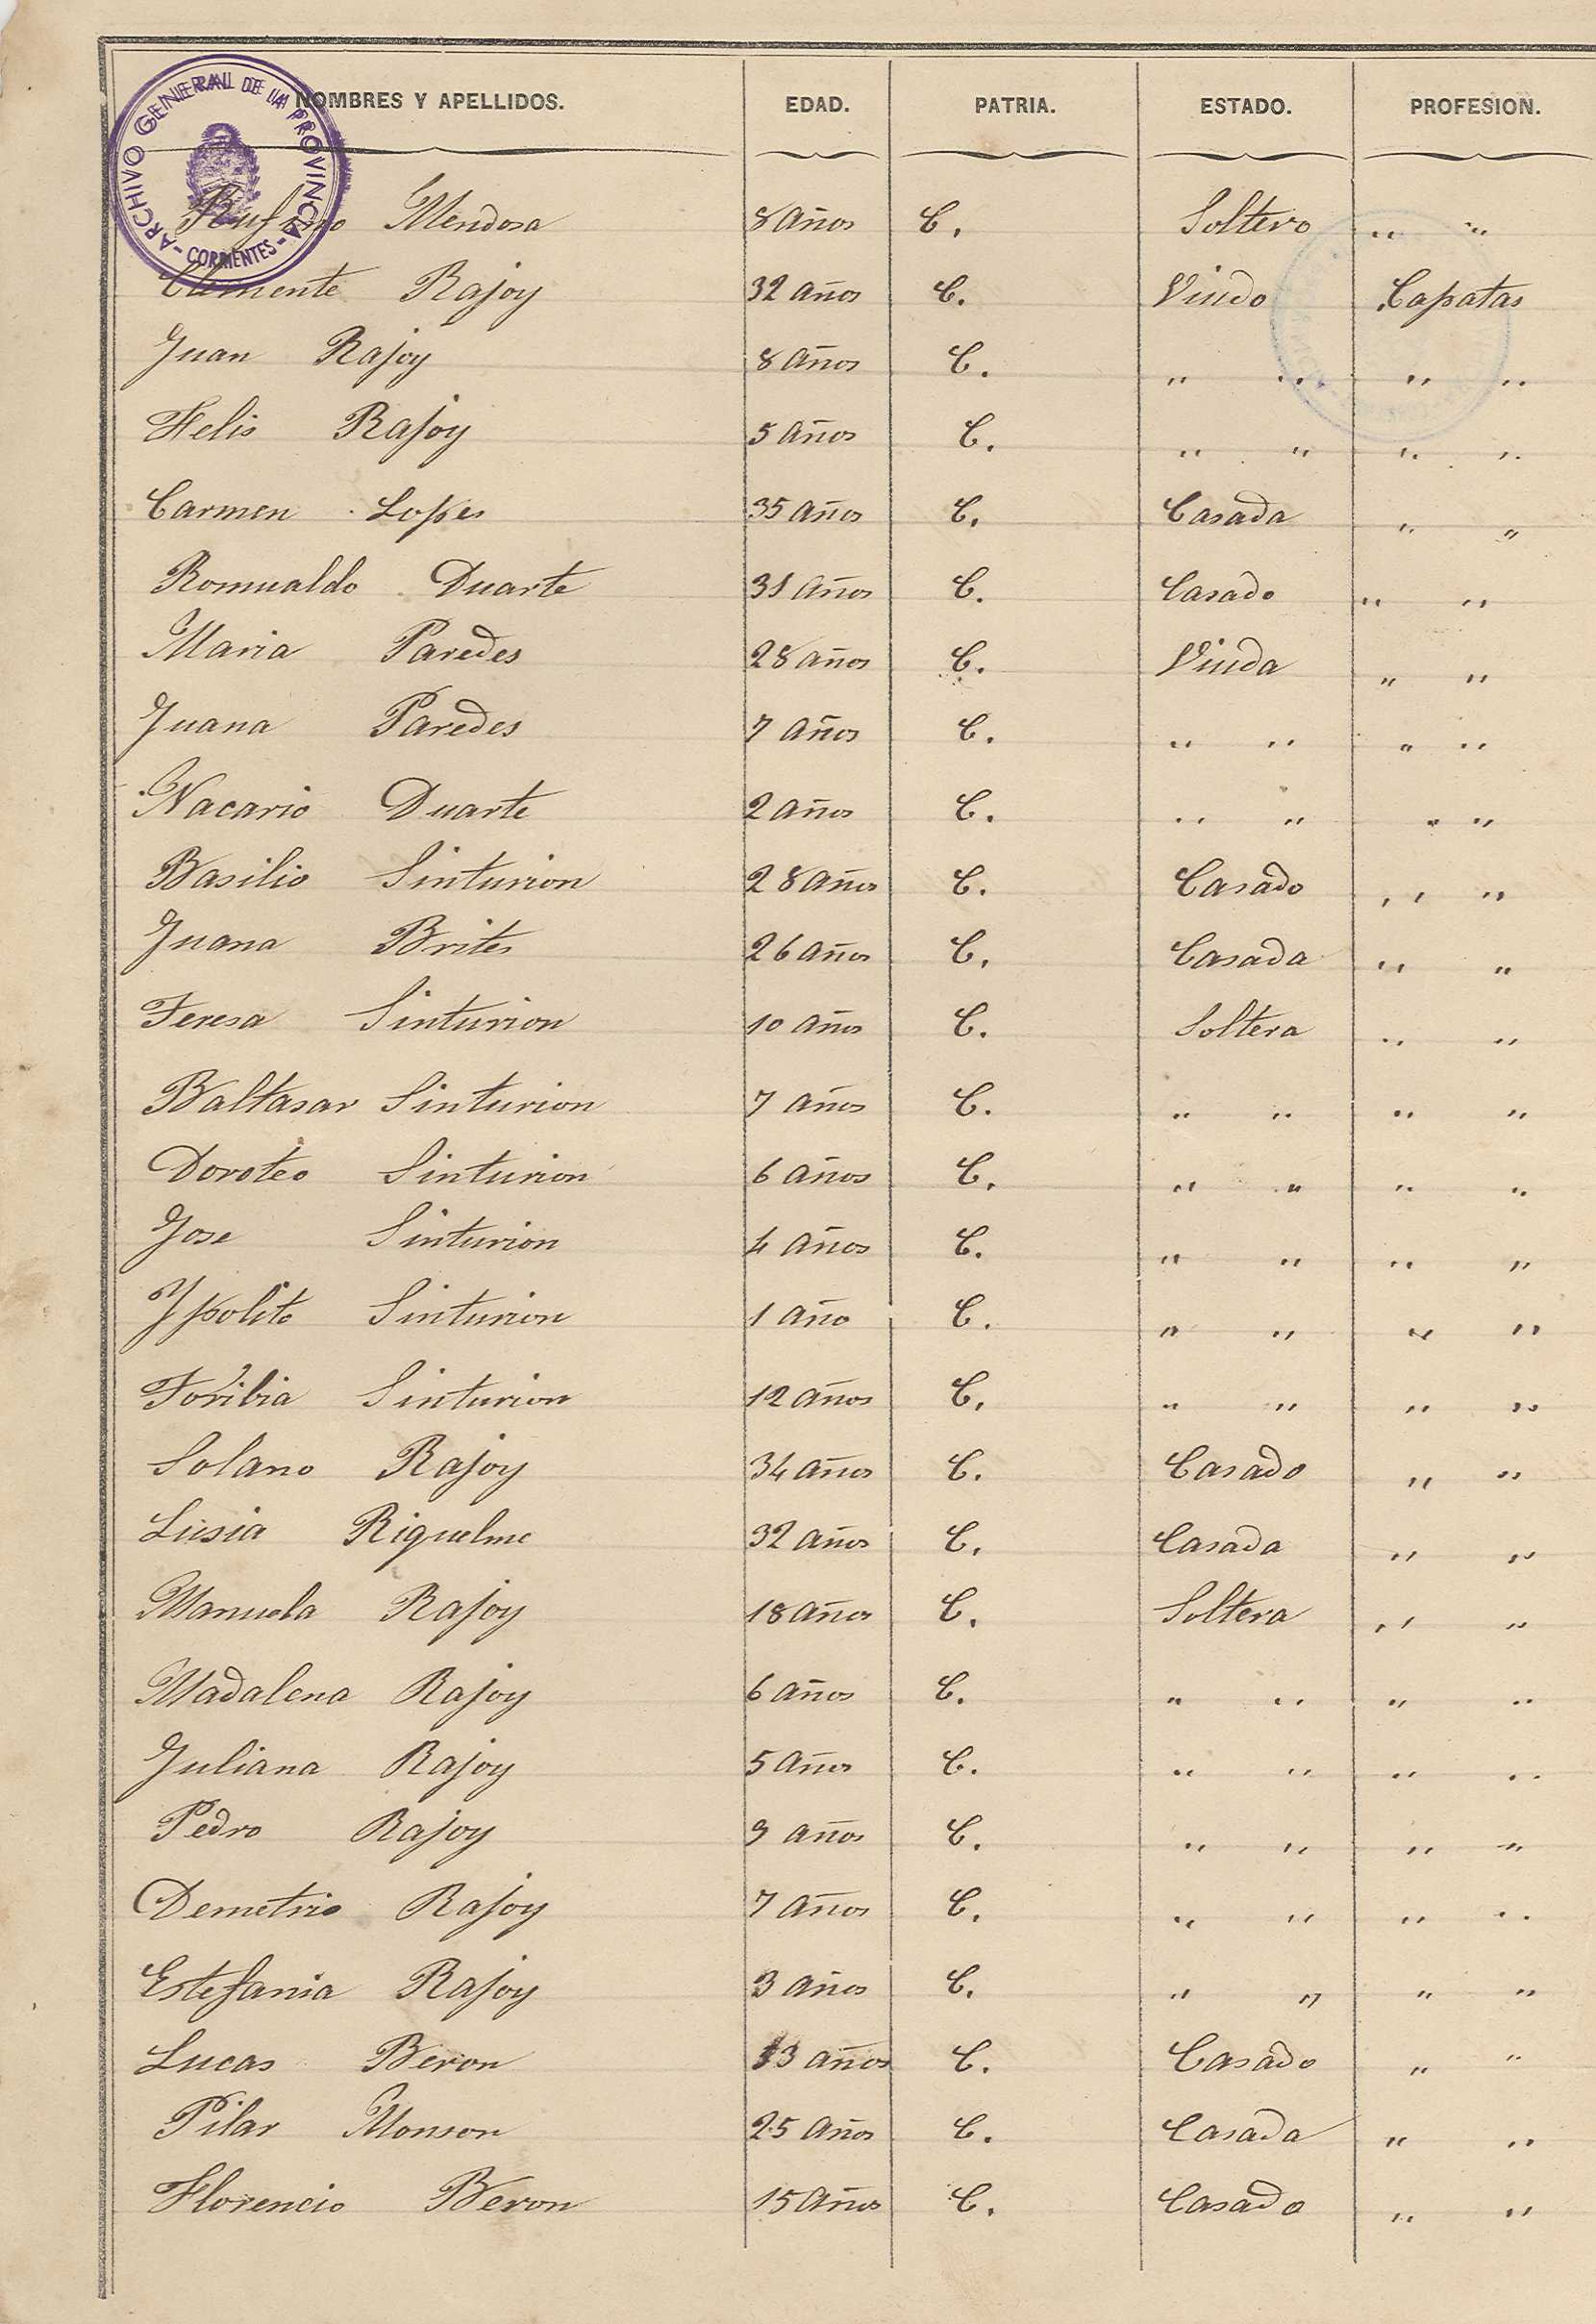 ARCHIVO GENERAL DE LA PROVINCIA - CORRIENTES -
NOMBRES Y APELLIDOS. EDAD. PATRIA. ESTADO. PROFESION.
Rufino Mendosa 8 Años C. Soltero " "
Clemente Rajoy 32 Años C. Viudo Capatas
Juan Rajoy 8 Años C. " " " "
Felis Rajoy 5 Años C. " " " "
Carmen Lopes 35 Años C. Casada " "
Romualdo Duarte 31 Años C. Casado " "
Maria Paredes 28 Años C. Viuda " "
Juana Paredes 7 Años C. " " " "
Nacario Duarte 2 Años C. " " " "
Basilio Sinturion 28 Años C. Casado " "
Juana Brites 26 Años C. Casada " "
Teresa Sinturion 10 Años C. Soltera " "
Baltasar Sinturion 7 Años C. " " " "
Doroteo Sinturion 6 Años C. " " " "
Jose Sinturion 4 Años C. " " " "
Ypolito Sinturion 1 Año C. " " " "
Toribia Sinturion 12 Años C. " " " "
Solano Rajoy 34 Años C. Casado " "
Lusia Riquelme 32 Años C. Casada " "
Manuela Rajoy 18 Años C. Soltera " "
Madalena Rajoy 6 Años C. " " " "
Juliana Rajoy 5 Años C. " " " "
Pedro Rajoy 9 Años C. " " " "
Demetrio Rajoy 7 Años C. " " " "
Estefania Rajoy 3 Años C. " " " "
Lucas Beron años C. Casado " "
Pilar Monson 25 Años C. Casada " "
Florencio Beron 15 Años C. Casado " "